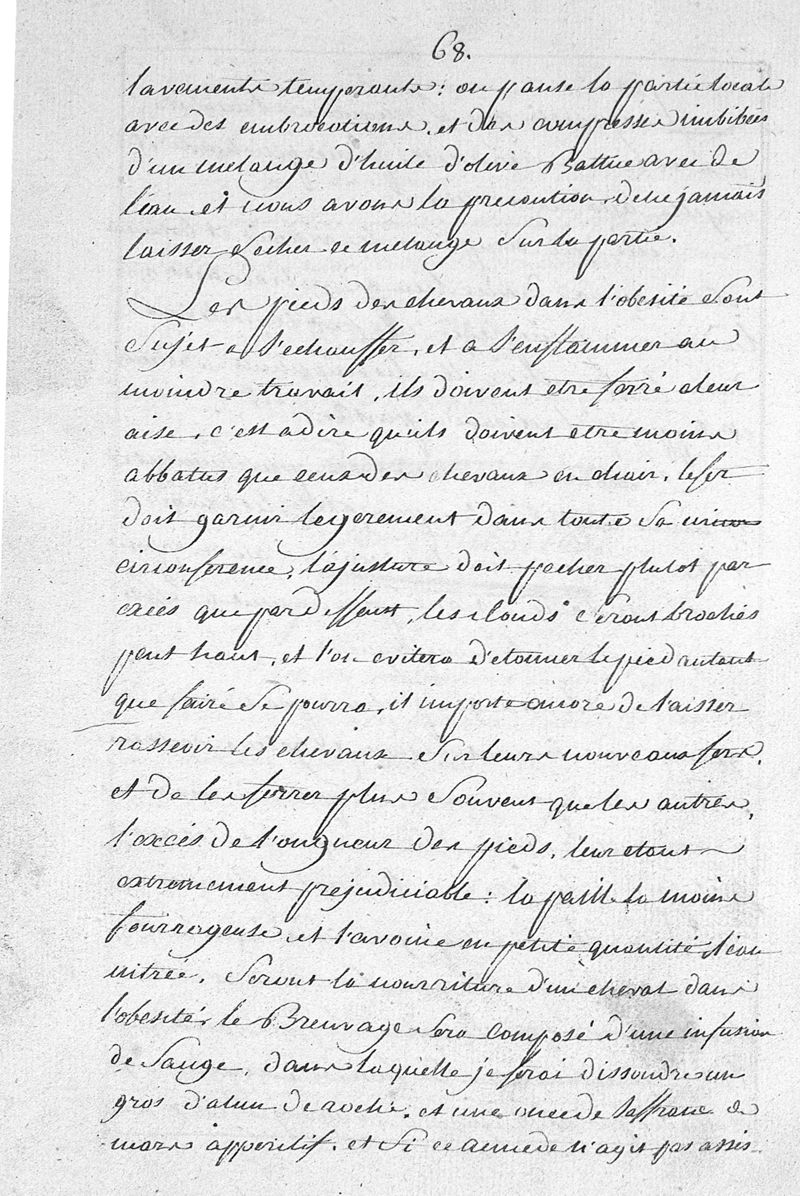 68.
lavements temperants: on panse la partie locale
avec des embrocations, et des compresses imbibées
d'un melange d'huile d'olive Battue avec de
l'eau, et nous avons la precaution, de ne jamais
laisser secher ce melange sur la partie.
Les pieds des chevaux dans l'obesité sont
sujet a s'echauffer, et a s'enflammer au
moindre travail, ils doivent etre ferré a leur
aise, c'est adire qu'ils doivent etre moins
abbatus que ceux des chevaux en chair, le fer
doit garnir legerement dans toute sa
circonference, l'ajusture doit pecher plutot par
excés que par deffaut, les clouds ceront brochés
peut haut, et l'on evitera d'etonner le pied autant
que faire se pourra, il importe encore de laisser
rasseoir les chevaux sur leurs nouveaux fers,
et de les ferrer plus souvent que les autres,
l'excés de longueur des pieds, leur etant
extremement prejudiciable: la paille la moins
fourrageuse, et l'avoine en petite quantité, l'eau
nitrée, seront la nourriture d'un cheval dans
l'obesité, le Breuvage sera composé d'une infusion
de Sauge, dans laquelle je ferai dissoudre un
gros d'alun de roche, et une once de saffran de
mars apperitif, et si ce remede n'agit pas assés